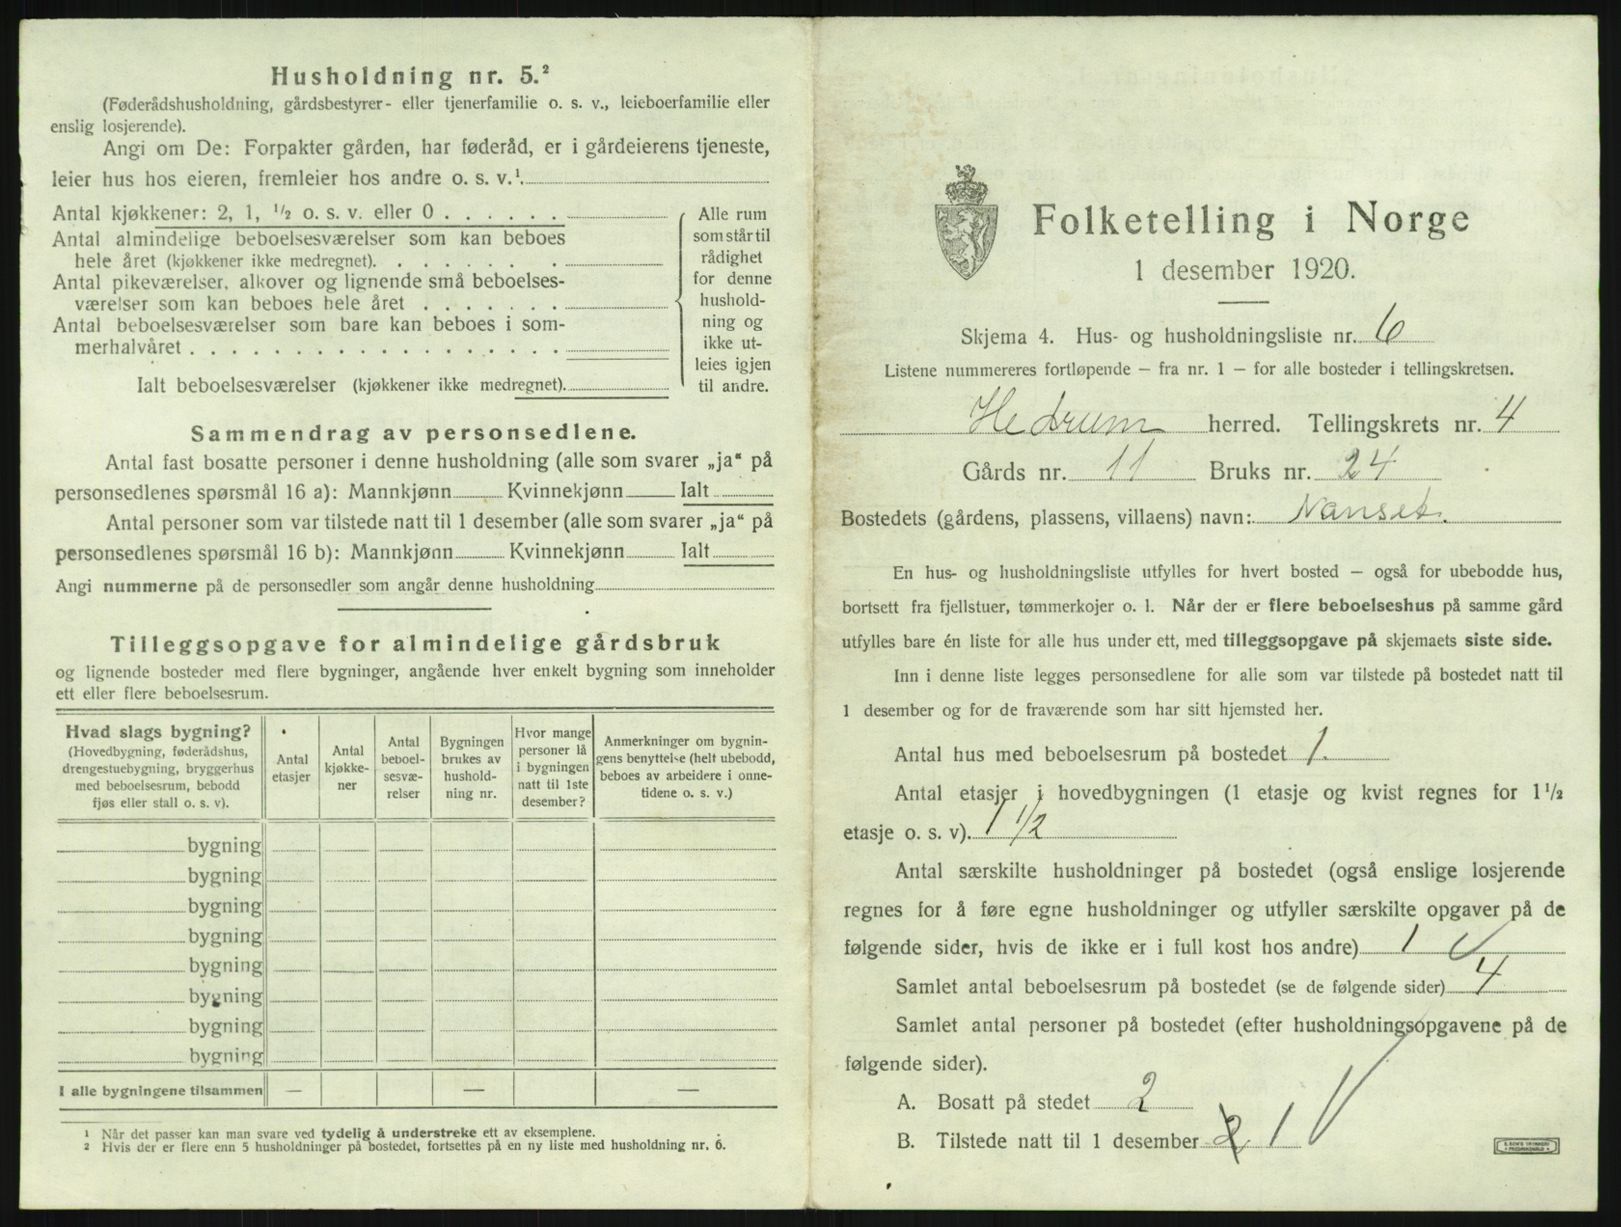 Husholdning nr. 5.²
(Føderådshusholdning, gårdsbestyrer- eller tjenerfamilie o. s. v., leieboerfamilie eller
enslig losjerende).
Angi om De: Forpakter gården, har føderåd, er i gårdeierens tjeneste,
leier hus hos eieren, fremleier hos andre o. s. v.¹
Antal kjøkkener: 2, 1, ½ o. s. v. eller 0 . . . . . .
Antal almindelige beboelsesværelser som kan beboes
hele året (kjøkkener ikke medregnet). . . . . . . .
Antal pikeværelser, alkover og lignende små beboelses-
værelser som kan beboes hele året . . . . . . .
Antal beboelsesværelser som bare kan beboes i som-
merhalvåret . . . . . . . . . . . . . . . . . .
Ialt beboelsesværelser (kjøkkener ikke medregnet).
Alle rum
som står til
rådighet
for denne
hushold-
ning og
ikke ut-
leies igjen
til andre.
Sammendrag av personsedlene.
Antal fast bosatte personer i denne husholdning (alle som svarer „ja“ på
personsedlenes spørsmål 16 a): Mannkjønn Kvinnekjønn Ialt
Antal personer som var tilstede natt til 1 desember (alle som svarer „ja“ på
personsedlenes spørsmål 16 b): Mannkjønn Kvinnekjønn Ialt
Angi nummerne på de personsedler som angår denne husholdning
Tilleggsopgave for almindelige gårdsbruk
og lignende bosteder med flere bygninger, angående hver enkelt bygning som inneholder
ett eller flere beboelsesrum.
Hvad slags bygning?
(Hovedbygning, føderådshus,
drengestuebygning, bryggerhus
med beboelsesrum, bebodd
fjøs eller stall o. s. v).
Antal
etasjer
Antal
kjøkke-
ner
Antal
beboel-
sesvæ-
relser
Bygningen
brukes av
hushold-
ning nr.
Hvor mange
personer lå
i bygningen
natt til 1ste
desember?
Anmerkninger om bygnin-
gens benyttelse (helt ubebodd,
beboes av arbeidere i onne-
tidene o. s. v.)
bygning
bygning
bygning
bygning
bygning
bygning
bygning
bygning
I alle bygningene tilsammen — — —
¹ Når det passer kan man svare ved tydelig å understreke ett av eksemplene.
² Hvis der er flere enn 5 husholdninger på bostedet, fortsettes på en ny liste med husholdning nr. 6.
Folketelling i Norge
1 desember 1920.
Skjema 4. Hus- og husholdningsliste nr. 6
Listene nummereres fortløpende — fra nr. 1 — for alle bosteder i tellingskretsen.
Hedrum herred. Tellingskrets nr. 4
Gårds nr. 11 Bruks nr. 24
Bostedets (gårdens, plassens, villaens) navn: Nanset.
En hus- og husholdningsliste utfylles for hvert bosted — også for ubebodde hus,
bortsett fra fjellstuer, tømmerkojer o. l. Når der er flere beboelseshus på samme gård
utfylles bare én liste for alle hus under ett, med tilleggsopgave på skjemaets siste side.
Inn i denne liste legges personsedlene for alle som var tilstede på bostedet natt til
1 desember og for de fraværende som har sitt hjemsted her.
Antal hus med beboelsesrum på bostedet 1.
Antal etasjer i hovedbygningen (1 etasje og kvist regnes for 1½
etasje o. s. v). 1 1/2
Antal særskilte husholdninger på bostedet (også enslige losjerende
regnes for å føre egne husholdninger og utfyller særskilte opgaver på de
følgende sider, hvis de ikke er i full kost hos andre) 1
Samlet antal beboelsesrum på bostedet (se de følgende sider) 4
Samlet antal personer på bostedet (efter husholdningsopgavene på de
følgende sider).
A. Bosatt på stedet 2
B. Tilstede natt til 1 desember 2 1